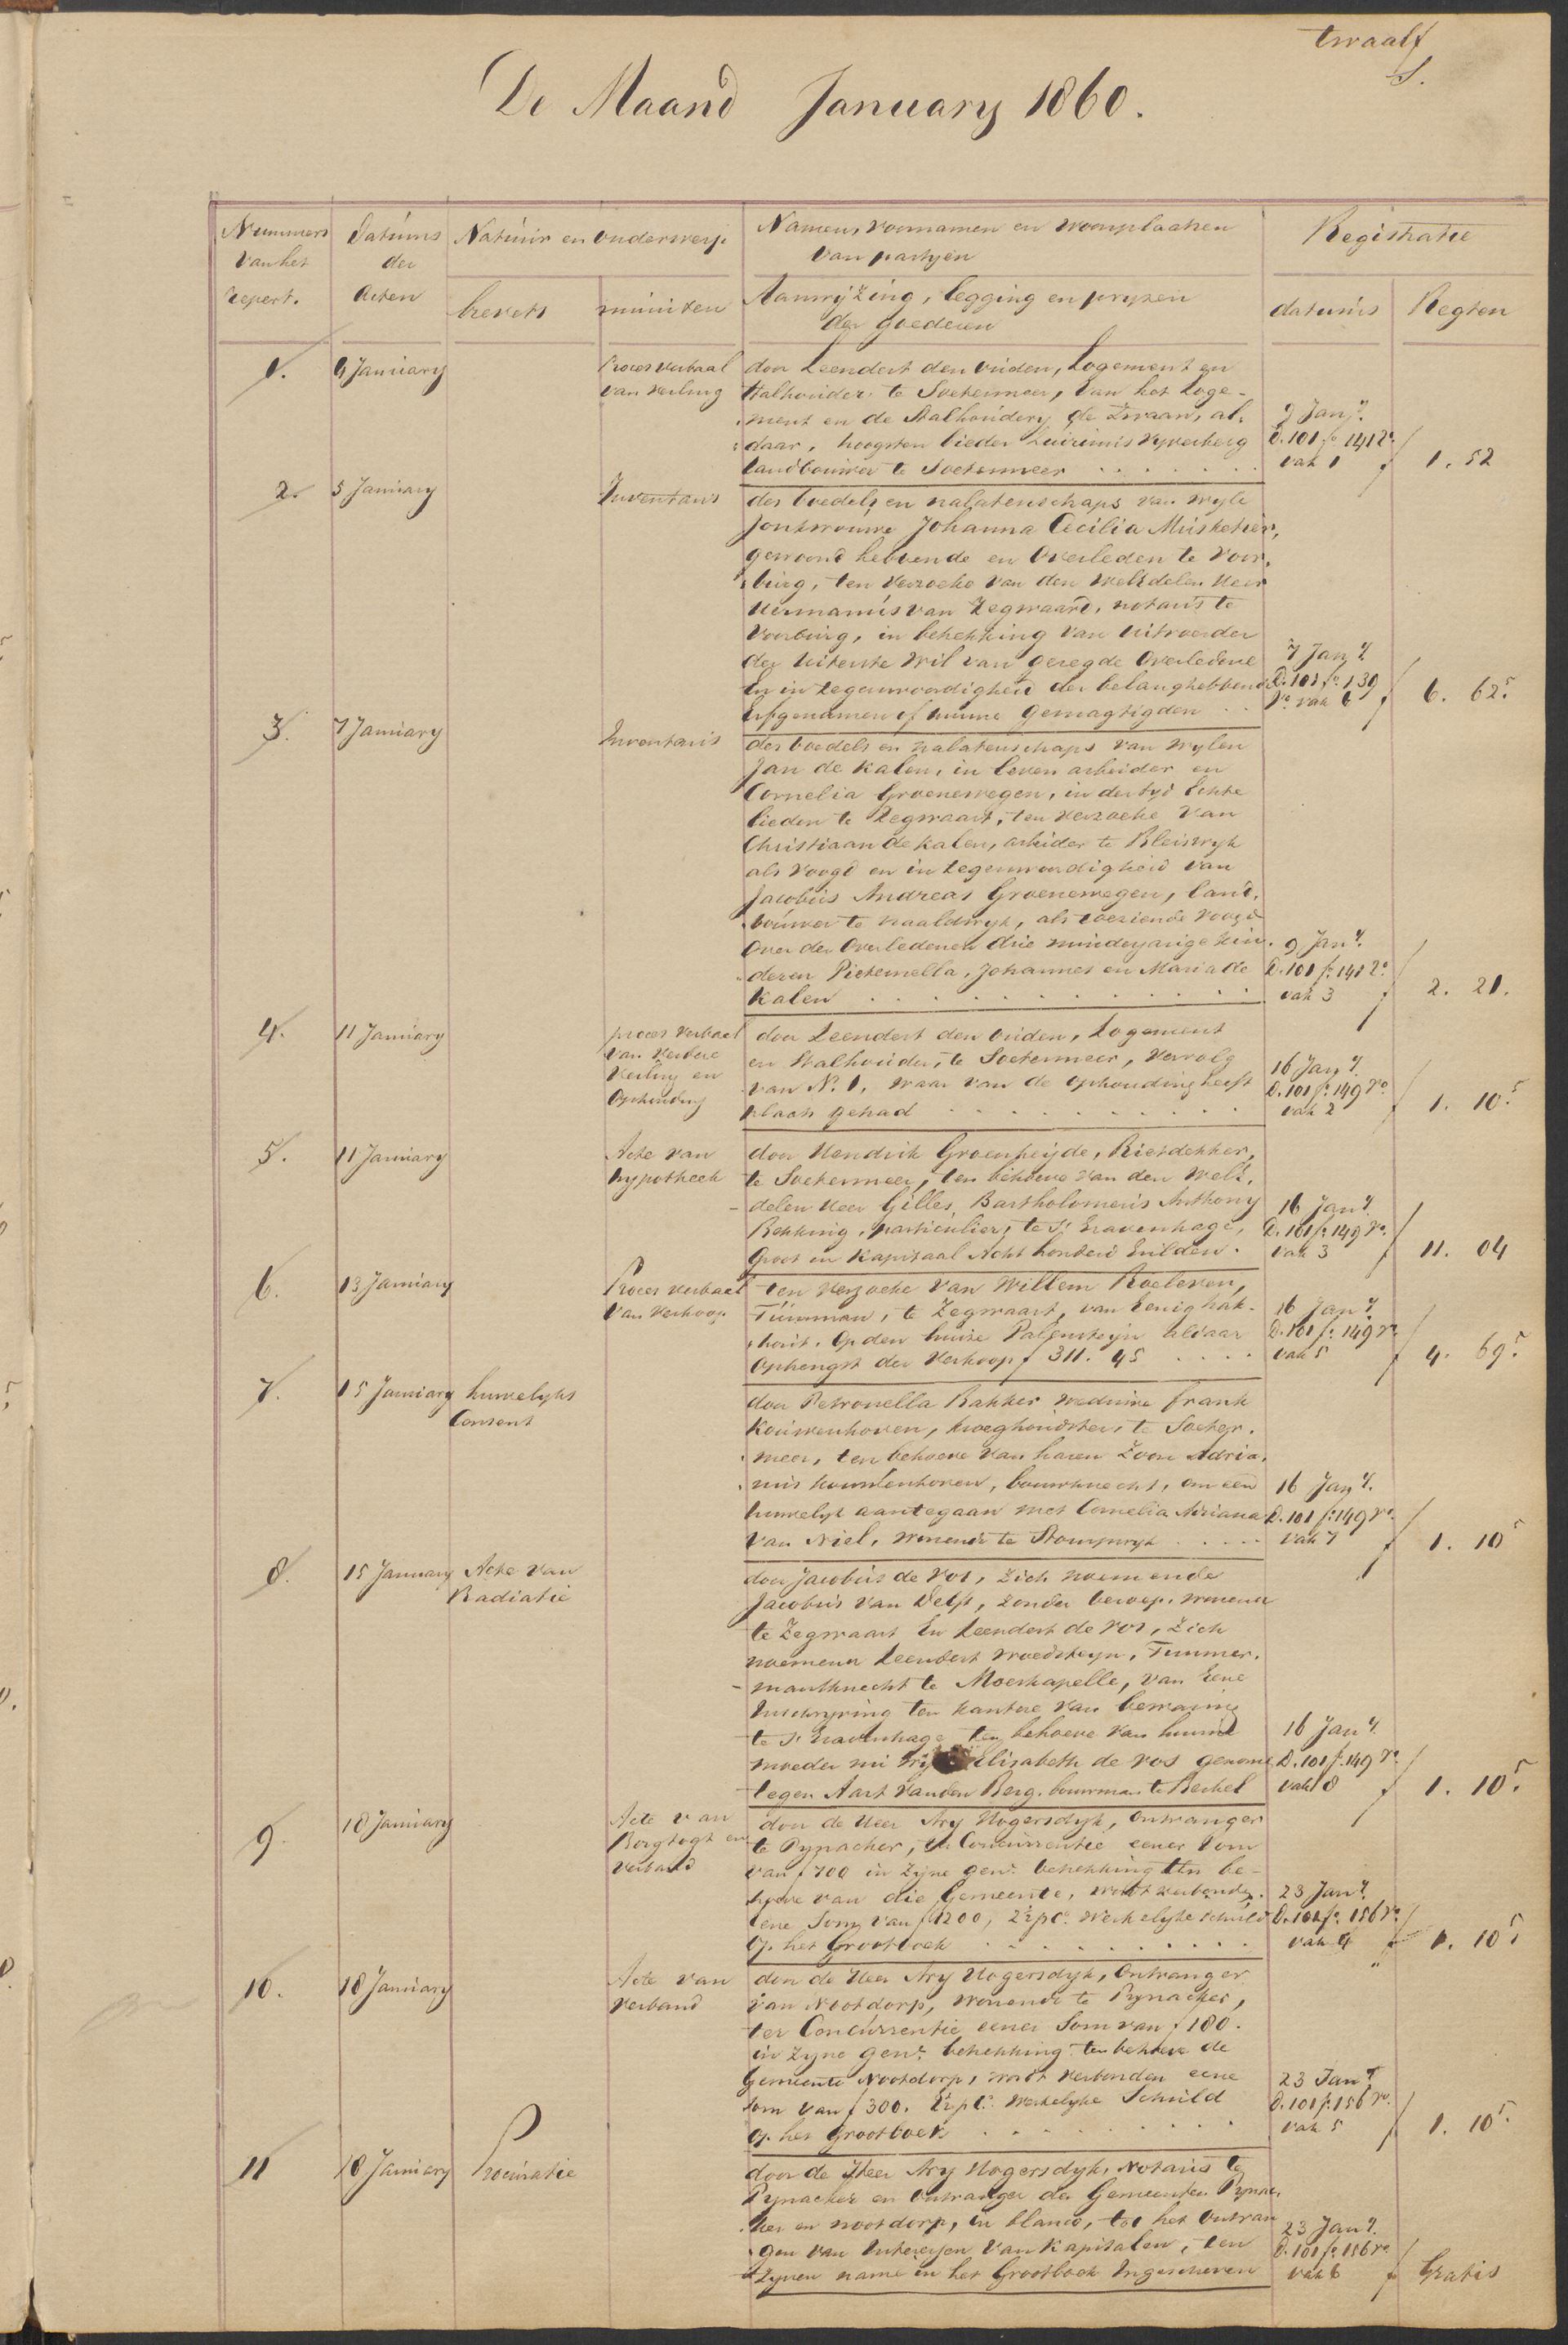 twaalf
De Maand January 1860.
Nummers van het repert.
Datums der Acten
Natuur en Onderwerp
brevets
minuten
Namen, voornamen en woonplaatsen
van partyen
Aanwyzing, legging en pryzen
der goederen
Registratie
datums
Regten
1. 4 January Proces verbaal door Leendert den Ouden, Logement en
van veiling Stalhouder te Soetermeer, van het Loge-
ment en de Stalhoudery de Zwaan, al- 9 Jany.
daar, hoogsten bieder Vyverberg D. 101 fo 141 Vo.
Landbouwer te Soetermeer vak 1 f 1. 52
2. 5 January Inventaris des boedels en nalatenschaps van wyle
Jonkvrouwe Johanna Cecilia Musketier,
gewoond hebbende en Overleden te Voor-
burg, ten verzoeke van den WelEdelen Heer
Hermanus van Zegwaard, notaris te
Voorburg, in betrekking van Uitvoerder
der Uiterste Wil van gezegde Overledene 7 Jany.
En in tegenwoordigheid der belanghebbende D. 101 fo. 139
Erfgenamen of hunne gemagtigden Vo. vak 6 f 6. 62 5
3. 7 January Inventaris des boedels en nalatenschaps van wylen
Jan de Kalen, in leven arbeider en
Cornelia Groenewegen, in der tyd Echte
lieden te Zegwaart, ten verzoeke van
Christiaan de Kalen, arbeider te Bleiswyk
als voogd en in tegenwoordigheid van
Jacobus Andreas Groenewegen, land-
bouwer te Naaldwyk, als toeziende voogd
Over der Overledenen drie minderjarige kin- 9 Jany.
deren Pieternella, Johannes en Maria de D. 101 fo. 141 Vo.
Kalen vak 3 f 2. 21.
4. 11 January proces verbaal door Leendert den Ouden, Logement
van verdere en Stalhouder, te Soetermeer, vervolg 16 Jany.
Veiling en van No. 1, waar van de ophouding heeft D. 101 fo. 149 ro.
Ophouding plaats gehad vak 2 f 1. 10 5
5. 11 January Acte van door Hendrik Groenheijde, Rietdekker,
hypotheek te Soetermeer, ten behoeve van den WelE-
delen Heer Gilles Bartholomeus Anthony 16 Jany.
Bekking, particulier, te s' Gravenhage, D. 101 fo. 149 ro.
Groot in Kapitaal Acht honderd Gulden. vak 3 f 11. 04
6. 13 January Proces verbaal ten verzoeke van Willem Roeleven,
van verkoop Timmman, te Zegwaart, van Eenig hak- 16 Jany.
hout, Op den huize Palensteyn aldaar D. 101 fo. 149 ro.
Opbrengst der Verkoop f 311. 45 vak 5 f 4. 69 5
7. 15 January huwelyks door Petronella Bakker weduwe Frank
Consent Kouwenhoven, kroeghoudster, te Soeter-
meer, ten behoeve van haren Zoon Adria-
nus Kouwenhoven, bouwknecht, om een 16 Jany.
huwelyk aantegaan met Cornelia Adriana D. 101 fo. 149 ro.
van Niel, wonende te Stompwyk vak 7 f 1. 10 5
8. 15 January Acte van door Jacobus de Vos, zich noemende
Radiatie Jacobus van Delft, zonder beroep, wonend
te Zegwaart En Leendert de Vos, zich
noemend Leendert Woedsteyn, Timmer-
mansknecht te Moerkapelle, van Eene
Inschryving ten kantore van bewaring
te s' Gravenhage ten behoeve van hunne 16 Jany.
moeder nu Elisabeth de Vos genomen D. 101 fo. 149 ro.
tegen Aart van den Berg, bouwman te Berkel vak 8 f 1. 10 5
9. 18 January Acte van door de Heer Ary Hogersdyk, Ontvanger
Borgtogt en te Pynacker, ter Concurrentie eener Som
verband van f 700 in Zyne genoe. betrekking ten be-
hoeve van die Gemeente, wordt verbonden 23 Jany.
eene Som van f 1200, 2½ pCt. Werkelyke schuld D. 101 fo. 156 ro.
Op het Grootboek vak 4 f 1. 10 5
10. 18 January Acte van door de Heer Ary Hogersdyk, Ontvanger
verband van Nootdorp, wonende te Pynacker,
ter Concurrentie eener Som van f 180.
in Zyne genoe. betrekking ten behoeve de
Gemeente Nootdorp, wordt verbonden eene 23 Jany.
Som van f 300. 2½ pCt. Werkelyke Schuld D. 101 fo. 156 ro.
Op het Grootboek vak 5 f 1. 10 5
11 18 January Procuratie door de Heer Ary Hogersdyk, Notaris te
Pynacker en Ontvanger der Gemeenten Pynac-
ker en Nootdorp, in blanco, tot het Ontvan 23 Jany.
gen van Interessen van Kapitalen, ten D. 101 fo. 156 ro.
Zynen name in het Grootboek Ingeschreven vak 6 f Gratis